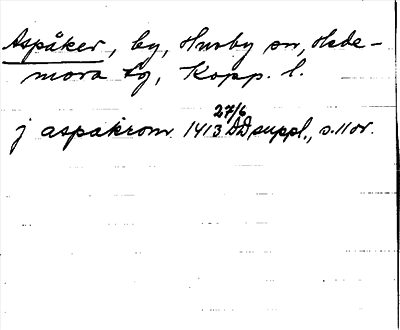 Aspåker, by, Husby sn, Hede-
mora tg, Kopp. l.
27/6
j aspakrom 1413 DD suppl., s.11 or.